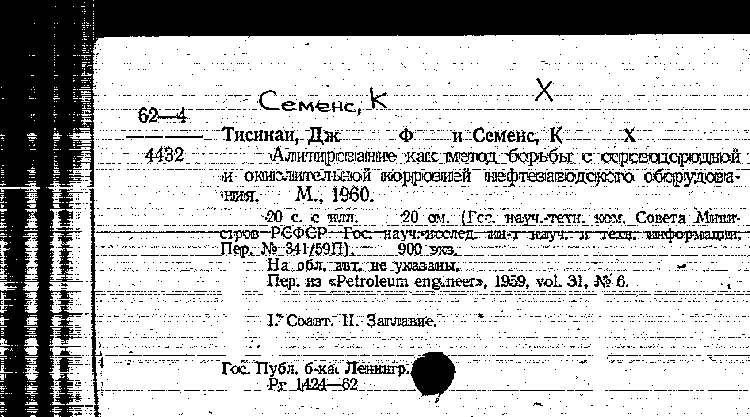 Семенс, К Х
62—4
4432
Тисинаи, Дж Ф и Семенс, К Х
Алитирование как метод борьбы с сероводородной
и окислительной коррозией нефтезаводского оборудова-
ния. М., 1960.
20 с. с илл. 20 см. (Гос. науч.-техн. ком. Совета Мини-
стров РСФСР. Гос. науч.-исслед. ин-т науч. и техн. информации.
Пер. № 341/59П). 900 экз.
На обл. авт. не указаны.
Пер. из «Petroleum engineer», 1959, vol. 31, № 6.
I. Соавт. II. Заглавие.
Гос. Публ. б-ка Ленингр.
Рг 1424—62